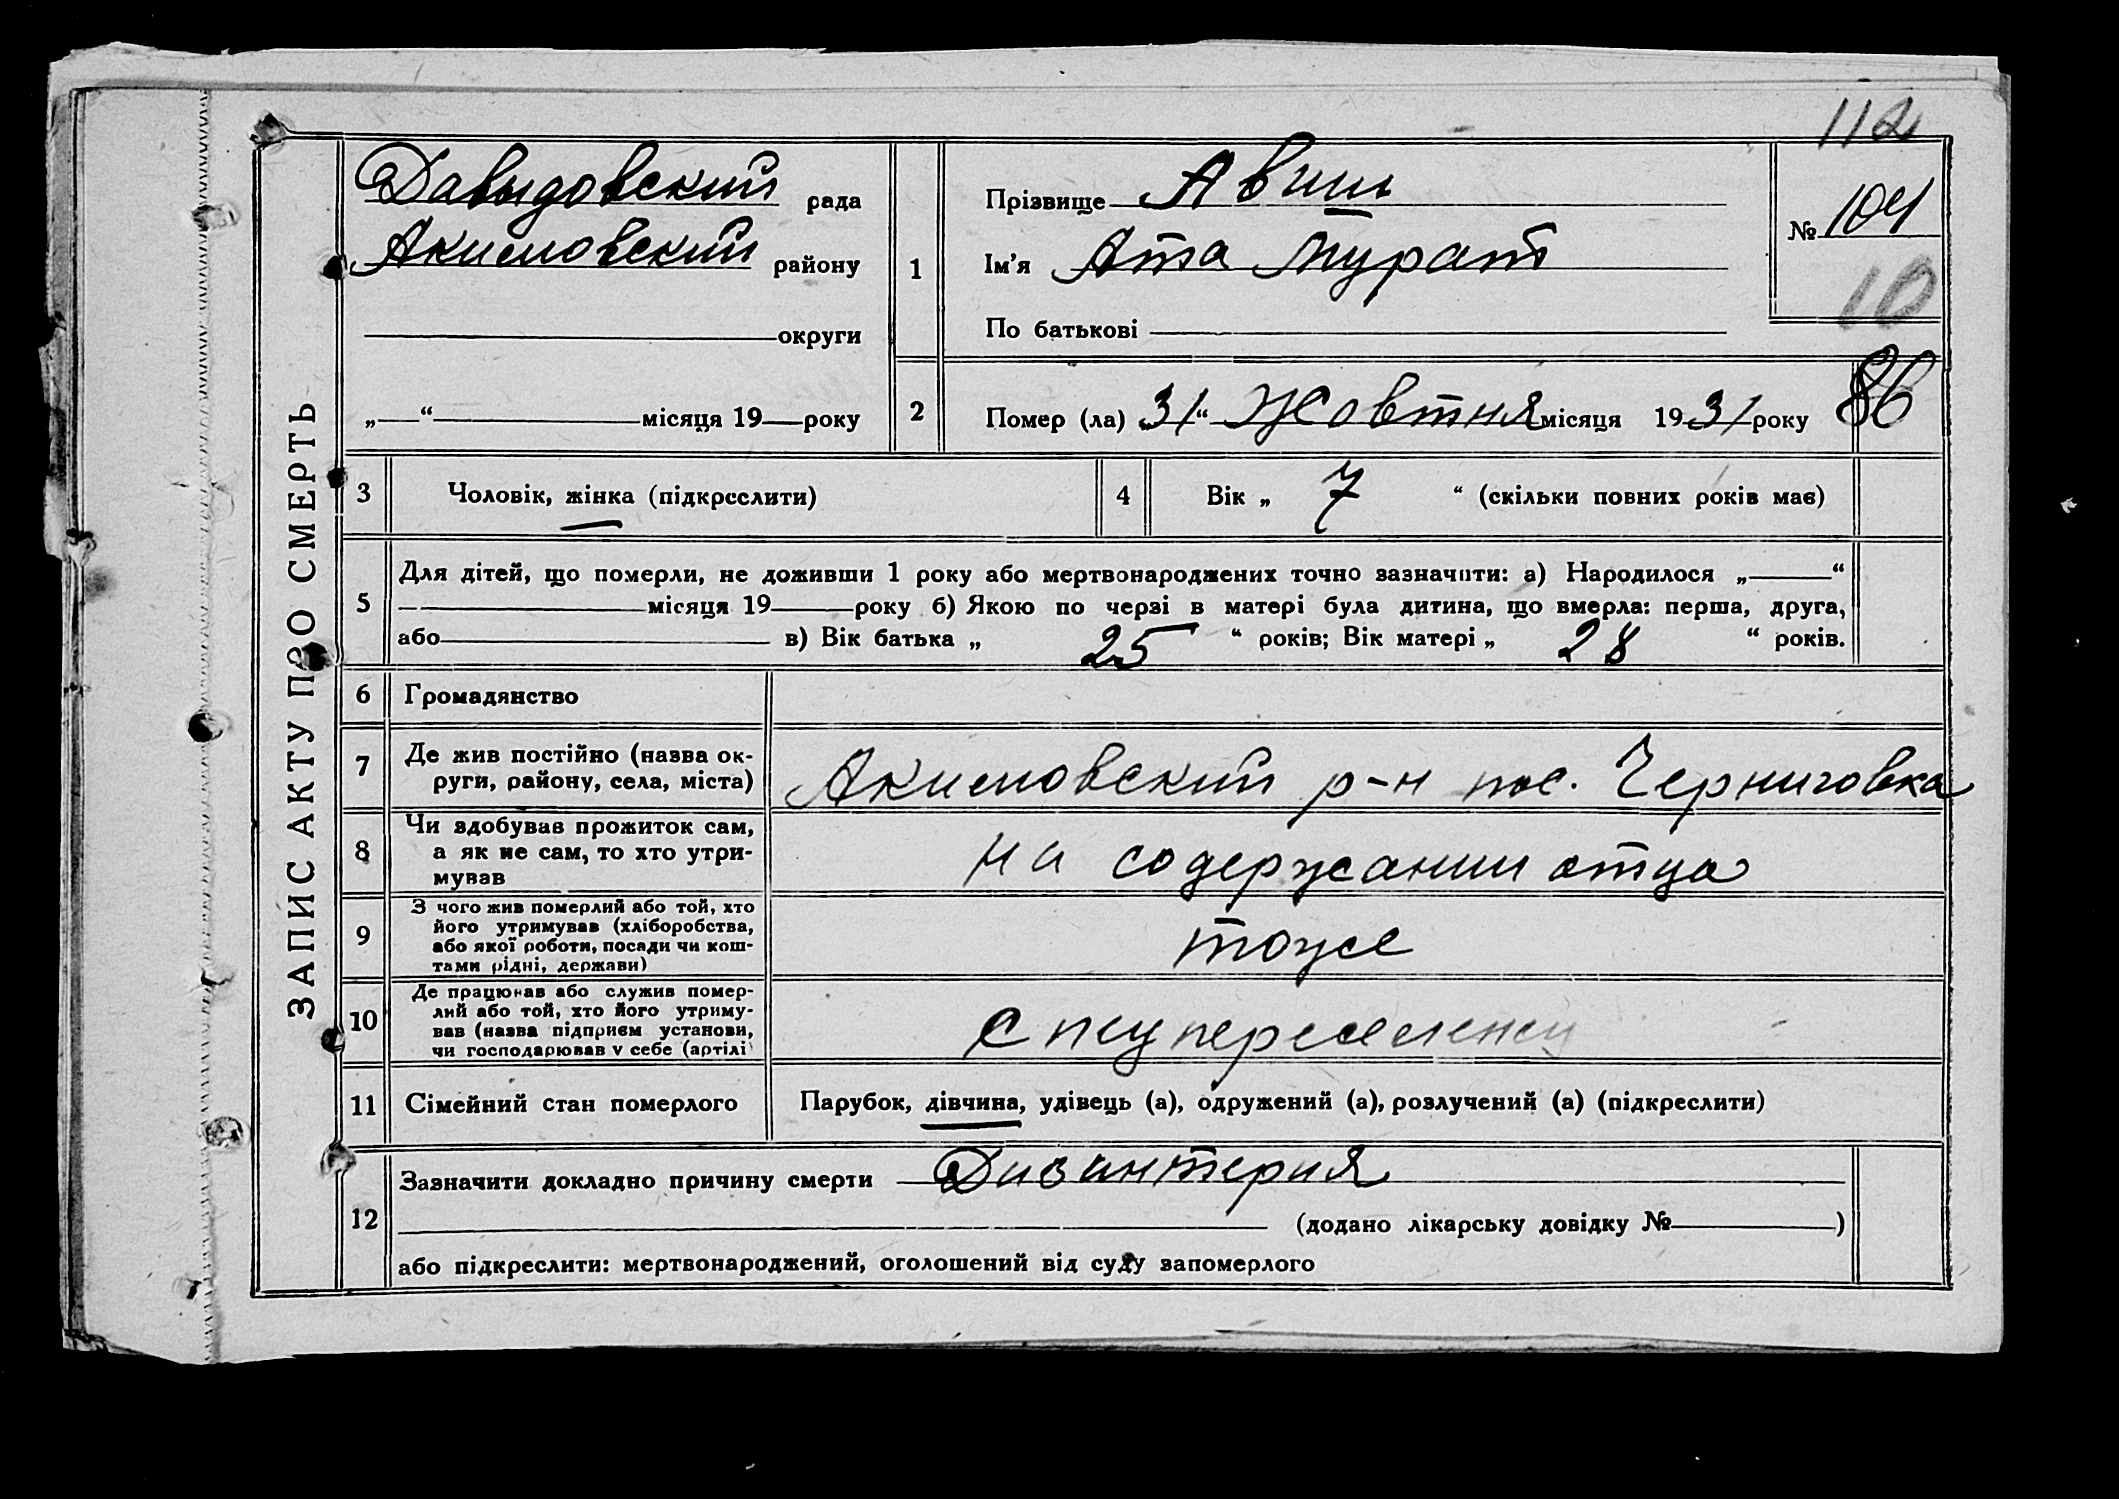 112
ЗАПИС АКТУ ПРО СМЕРТЬ
Давыдовский рада
Акимовский району
округи
„ “ місяця 19 року
1
Прізвище Авиш
Ім'я Ата Мурат
По батькові
№ 104
10
2
Помер (ла) „31“ Жовтня місяця 1931 року
86
3 Чоловік, жінка (підкреслити)
4 Вік „ 7 “ (скільки повних років має)
5 Для дітей, що померли, не доживши 1 року або мертвонароджених точно зазначити: а) Народилося „ “
місяця 19 року б) Якою по черзі в матері була дитина, що вмерла: перша, друга,
або в) Вік батька „ 25 “ років; Вік матері „ 28 “ років.
6 Громадянство
7 Де жив постійно (назва ок-
руги, району, села, міста)
Акимовский р-н пос. Черниговка
8 Чи здобував прожиток сам,
а як не сам, то хто утри-
мував
на содержании отца
9 З чого жив померлий або той, хто
його утримував (хліборобства,
або якої роботи, посади чи кош-
тами рідні, держави)
тоже
10 Де працював або служив помер-
лий або той, хто його утриму-
вав (назва підприєм установи,
чи господарював у себе (артілі
спецпереселенец
11 Сімейний стан померлого
Парубок, дівчина, удівець (а), одружений (а), розлучений (а) (підкреслити)
12 Зазначити докладно причину смерти Дизинтерия
(додано лікарську довідку № )
або підкреслити: мертвонароджений, оголошений від суду запомерлого